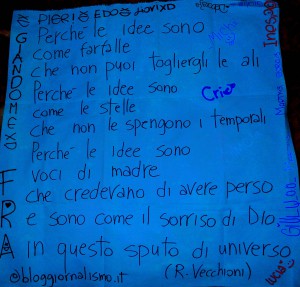 PIERI EDO
Perchè le idee sono
come farfalle
che non puoi togliergli le ali
Perchè le idee sono
come le stelle
che non le spengono i temporali
Perchè le idee sono
voci di madre
che credevano di avere perso
e sono come il sorriso di Dio
in questo sputo di universo
(R. Vecchioni)
@bloggiornalismo.it
FRA
Cric
Lucia